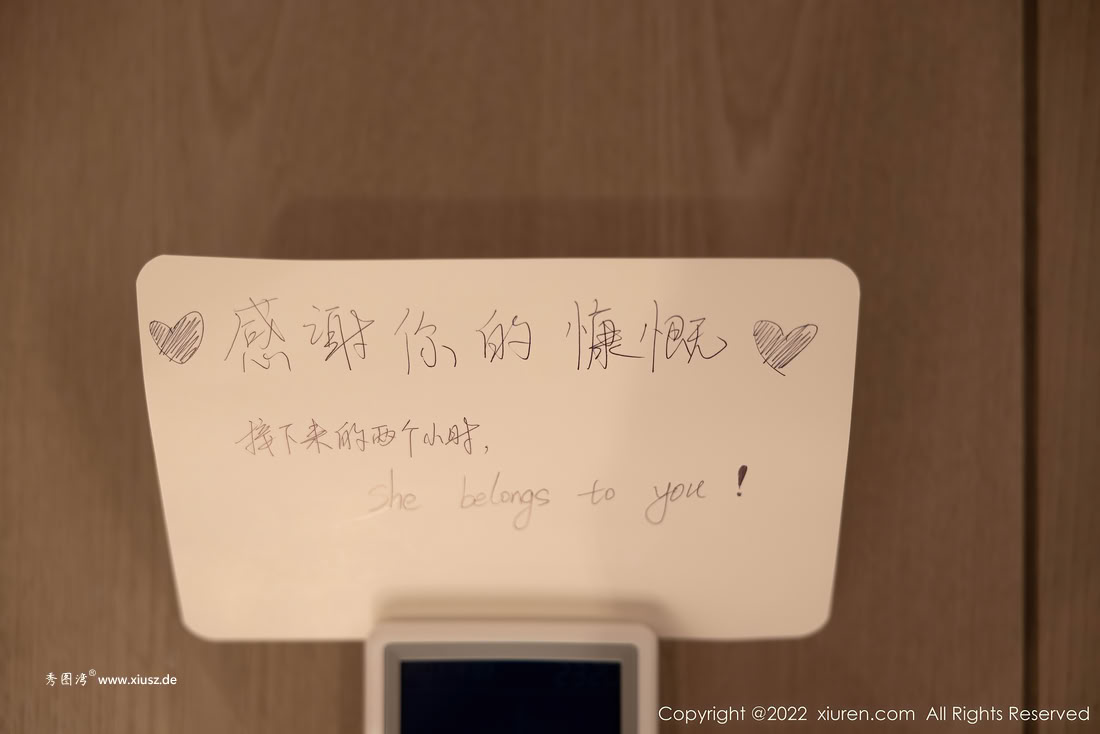 感谢你的慷慨
接下来的两个小时，
she belongs to you !
秀图湾® www.xiusz.de
Copyright @2022 xiuren.com All Rights Reserved